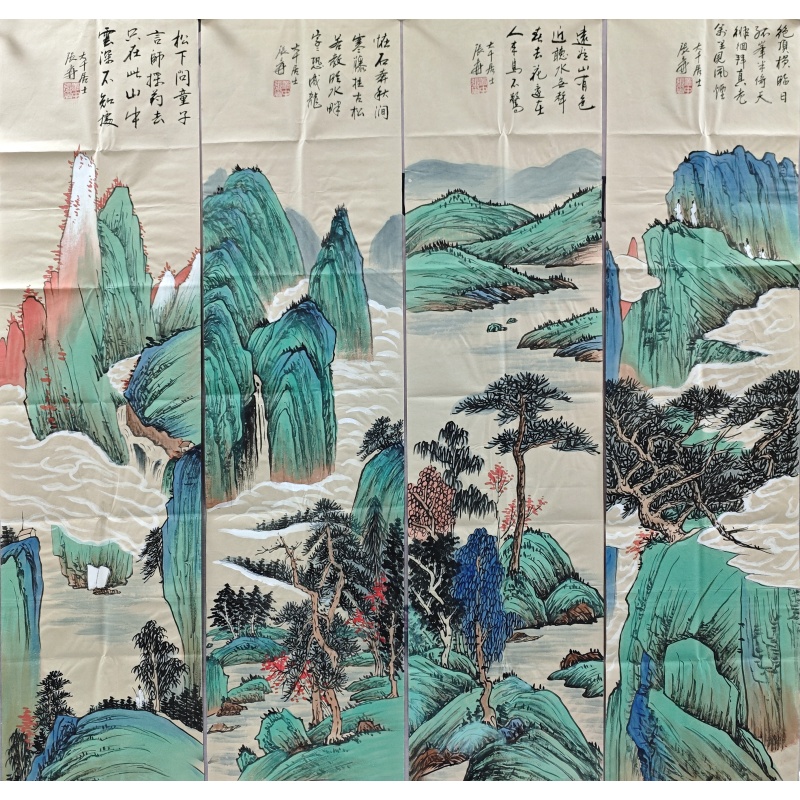 絕頂橫臨日
孤峯半倚天
徘徊拜真老
萬里見風煙
大千居士
張爰
遠看山有色
近聽水無聲
春去花還在
人來鳥不驚
大千居士
張爰
怪石奔秋澗
寒藤挂古松
若教臨水畔
字恐成龍
大千居士
張爰
松下問童子
言師採药去
只在此山中
雲深不知處
大千居士
張爰